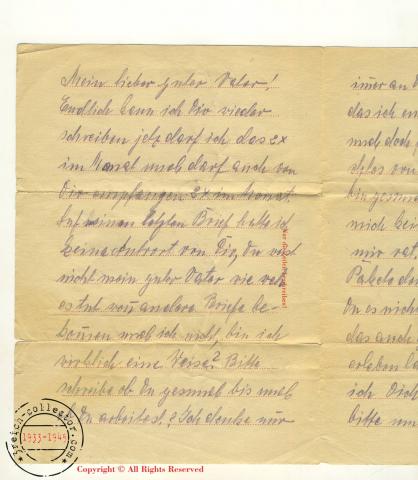 Mein lieber guter Vater!
Endlich kann ich Dir wieder
schreiben jetz darf ich das 2x
im Monat und darf auch von
Dir empfangen 2x im Monat.
Auf meinen letzten Brief hatte ich
keine Antwort von Dir, Du weist
nicht mein guter Vater wie weh
es tut wenn andere Briefe be-
kommen und ich nicht, bin ich
wirklich eine Waise? Bitte
schreibe ob Du gesund bist und
Du arbeitest? Ich denke nur
immer an
das ich
und doch
von
bin gesund
mich
mir
Pakete
Du es nicht
das auch
erleben
ich Dich
bitte
3reich-collector.com
1933-1945
Copyright © All Rights Reserved